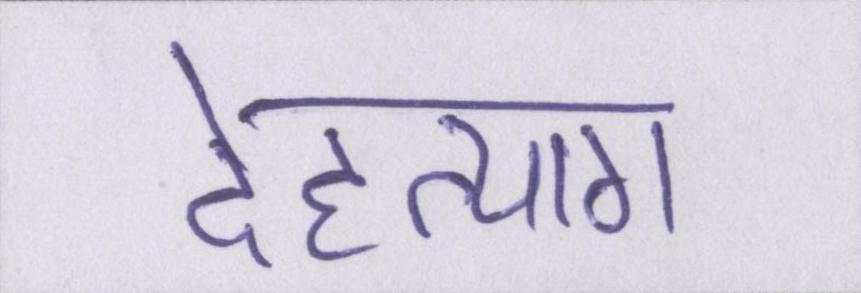 देहत्याग